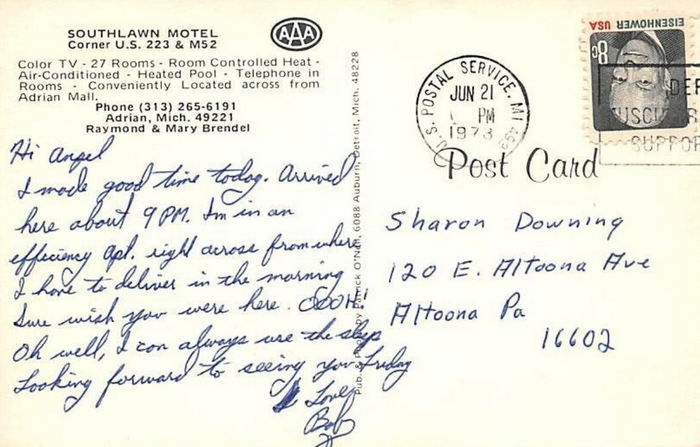 SOUTHLAWN MOTEL
Corner U.S. 223 & M52
AAA
Color TV - 27 Rooms - Room Controlled Heat -
Air-Conditioned - Heated Pool - Telephone in
Rooms - Conveniently Located across from
Adrian Mall.
Phone (313) 265-6191
Adrian, Mich. 49221
Raymond & Mary Brendel
Hi Angel
I made good time today. Arrived
here about 9 PM. I'm in an
efficiency apt. right across from where
I have to deliver in the morning
Sure wish you were here. OOOH!
Oh well, I can always use the sleep
Looking forward to seeing you Friday
Love
Bob
Pub. by Patrick O'Neil, 6088 Auburn, Detroit, Mich. 48228
U.S. POSTAL SERVICE, MI
JUN 21
PM
1973
EISENHOWER USA
8c
SUPPOR
Post Card
Sharon Downing
120 E. Altoona Ave
Altoona Pa
16602